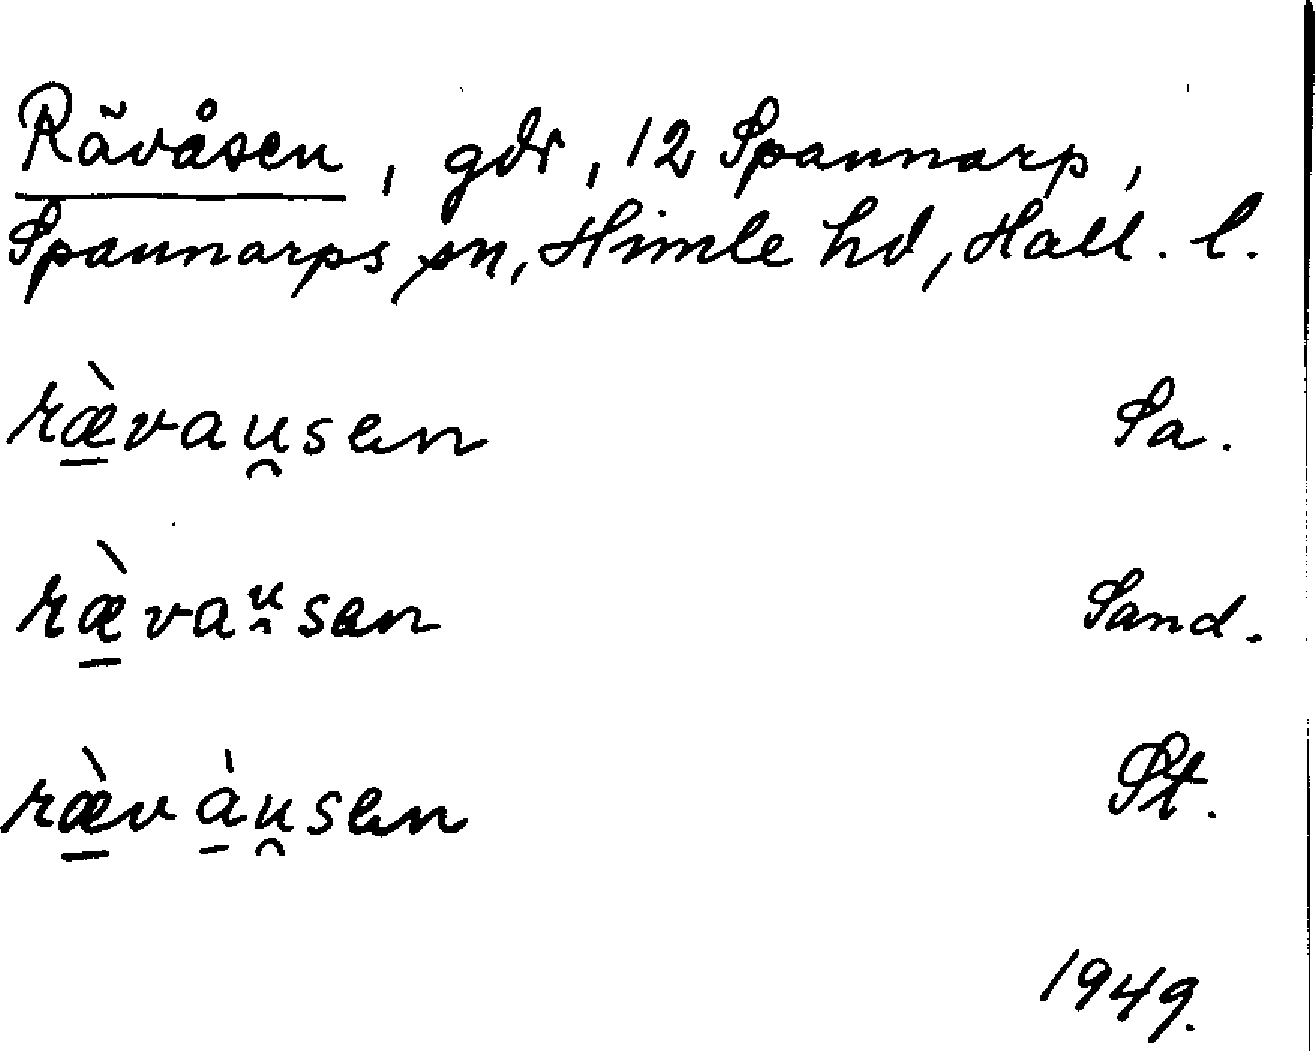 Rävåsen, gdr, 12 Spannarp,
Spannarps sn, Himle hd, Hall. l.
ræ̱̀vau̯sen Sa.
ræ̱̀vaᵘ̯sen Sand.
ræ̱̀và̱u̯sen St.
1949.